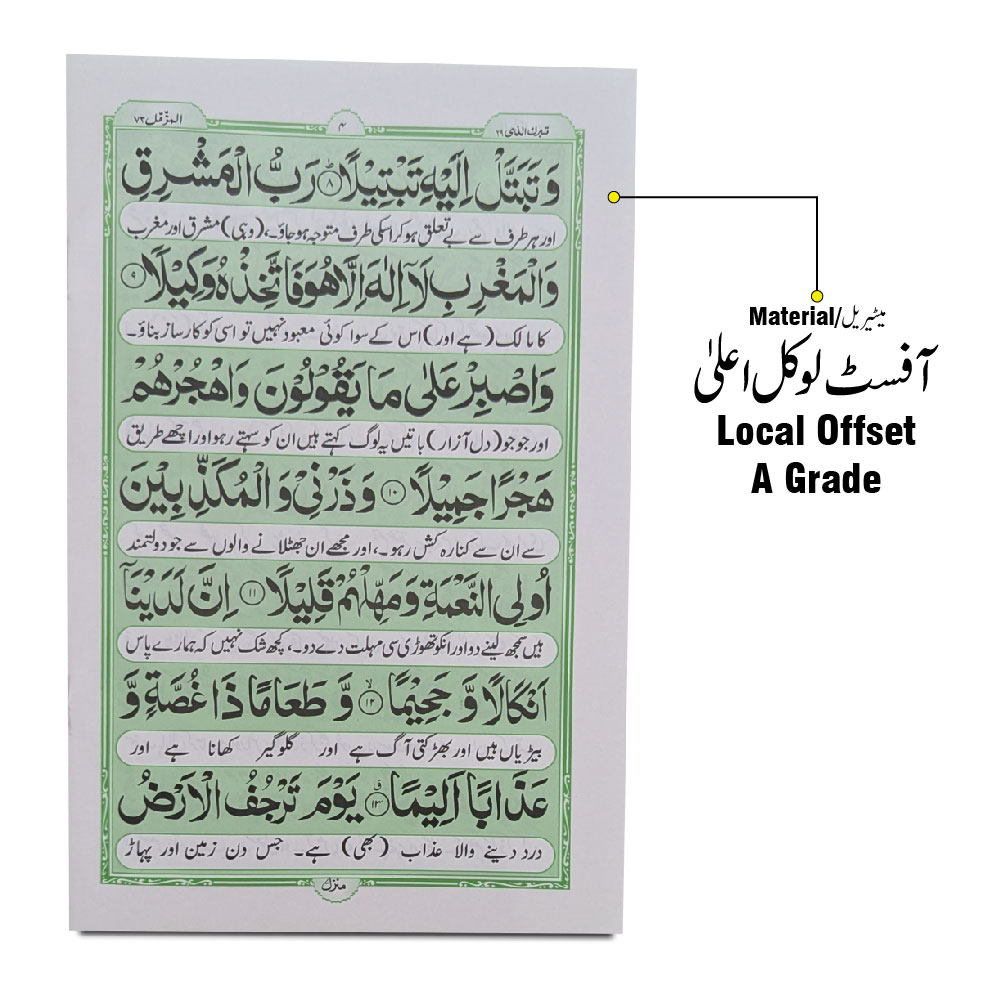 المزّمل ۷۳
۴
تبٰرك الذی ۲۹
وَ تَبَتَّلْ اِلَیْهِ تَبْتِیْلًا ۸ رَبُّ الْمَشْرِقِ
اور ہر طرف سے بے تعلق ہو کر اسکی طرف متوجہ ہو جاؤ۔، (وہی) مشرق اور مغرب
وَالْمَغْرِبِ لَاۤ اِلٰهَ اِلَّا هُوَ فَاتَّخِذْهُ وَكِیْلًا ۹
کا مالک (ہے اور) اس کے سوا کوئی معبود نہیں تو اسی کو کارساز بناؤ۔
وَاصْبِرْ عَلٰی مَا یَقُوْلُوْنَ وَاهْجُرْهُمْ
اور جو جو (دل آزار) باتیں یہ لوگ کہتے ہیں ان کو سہتے رہو اور اچھے طریق
هَجْرًا جَمِیْلًا ۱۰ وَ ذَرْنِیْ وَ الْمُكَذِّبِیْنَ
سے ان سے کنارہ کش رہو۔، اور مجھے ان جھٹلانے والوں سے جو دولتمند
اُولِی النَّعْمَةِ وَ مَهِّلْهُمْ قَلِیْلًا ۱۱ اِنَّ لَدَیْنَاۤ
ہیں سمجھ لینے دو اور انکو تھوڑی سی مہلت دے دو۔، کچھ شک نہیں کہ ہمارے پاس
اَنْكَالًا وَّ جَحِیْمًا ۱۲ وَّ طَعَامًا ذَا غُصَّةٍ وَّ
بیڑیاں ہیں اور بھڑکتی آگ ہے اور گلوگیر کھانا ہے اور
عَذَابًا اَلِیْمًا ۱۳ یَوْمَ تَرْجُفُ الْاَرْضُ
درد دینے والا عذاب (بھی) ہے۔ جس دن زمین اور پہاڑ
منزل
Material/میٹیریل
آفسٹ لوکل اعلیٰ
Local Offset
A Grade